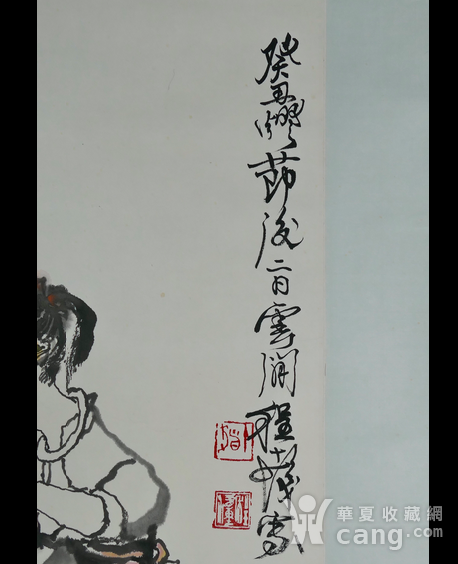 癸丑燈節後二日雲間程十髮寫
華夏收藏網
cang.com